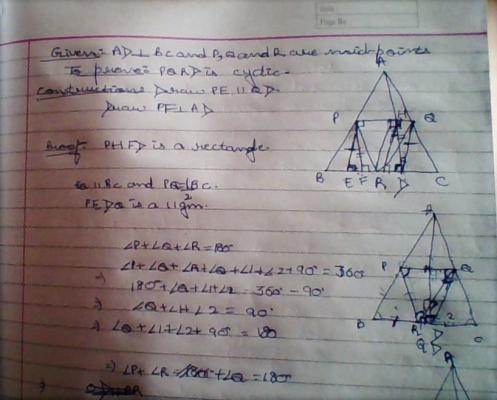 Given:- AD⊥ BC and P, Q and R, are mid-points
To prove:- PQRD is cyclic.
Construction:- Draw PE || QD.
Draw PF⊥AD
Proof PHFD is a rectangle.
|| BC and PQ=½BC.
PEDQ is a ||gm.
∠P+∠Q+∠R=180°
∠P+∠Q+∠A+∠Q+∠1+∠2+90°=360°
⇒ 180°+∠Q+∠1+∠2=360°-90°
⇒ ∠Q+∠1+∠2=90°
⇒ ∠Q+∠1+∠2+90°=180
⇒ ∠P+∠R=180°+∠Q=180°
⇒
A
P Q
B E F R D C
A
P Q
B R D C
2
A
Date
Page No.